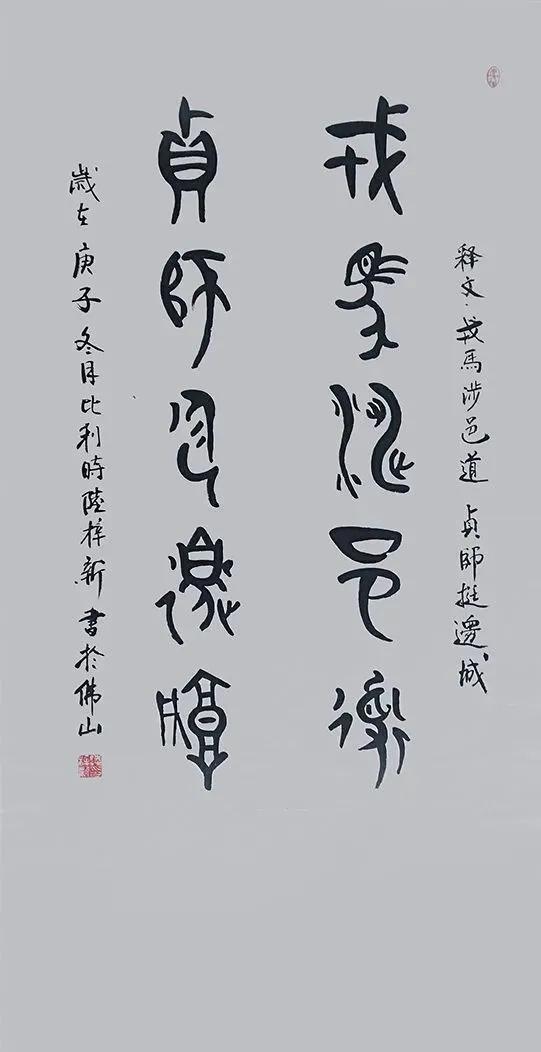 释文：戎馬涉邑道 貞師挺邊城
戎馬涉邑道
貞師挺邊城
歲在庚子冬月比利時陸梓新書於佛山